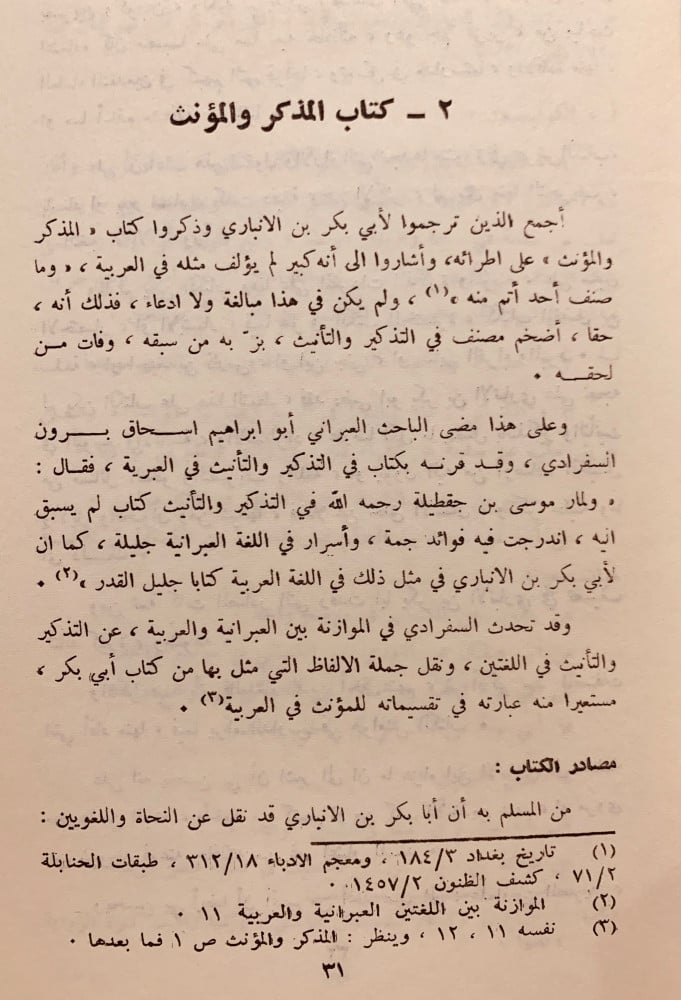 ٢ ـ كتاب المذكر والمؤنث
أجمع الذين ترجموا لأبي بكر بن الانباري وذكروا كتاب « المذكر
والمؤنث » على اطرائه، وأشاروا الى أنه كبير لم يؤلف مثله في العربية ، « وما
صنف أحد أتم منه »(١) ، ولم يكن في هذا مبالغة ولا ادعاء ، فذلك أنه ،
حقا ، أضخم مصنف في التذكير والتأنيث ، بزّ به من سبقه ، وفات مـن
لحقـــه ٠
وعلى هذا مضى الباحث العبراني أبو ابراهيم اســحاق بـــرون
السفرادي ، وقـد قرنـه بكتاب في التذكير والتأنيث في العبرية ، فقـال :
« ولمار موسى بن جقطيلة رحمه الله في التذكير والتأنيث كتاب لم يسبق
اليه ، اندرجت فيه فوائد جمة ، وأسرار في اللغة العبرانية جليلة ، كما ان
لأبي بكر بن الانباري في مثل ذلك في اللغة العربية كتابا جليل القدر »(٢) ٠
وقد تحدث السفرادي في الموازنة بين العبرانية والعربية ، عن التذكير
والتأنيث في اللغتين ، ونقل جملة الالفاظ التي مثل بها من كتاب أبي بكر ،
مستعيرا منه عبارته في تقسيماته للمؤنث في العربية(٣) ٠
مصادر الكتاب :
من المسلم به أن أبا بكر بن الانباري قد نقل عن النحاة واللغويين :
(١) تاريخ بغداد ١٨٤/٣ ، ومعجم الادباء ٣١٢/١٨ ، طبقات الحنابلة
٧١/٢ ، كشف الظنون ١٤٥٧/٢ ٠
(٢) الموازنة بين اللغتين العبرانية والعربية ١١ ٠
(٣) نفسه ١١ ، ١٢ ، وينظر : المذكر والمؤنث ص ١ فما بعدها ٠
٣١